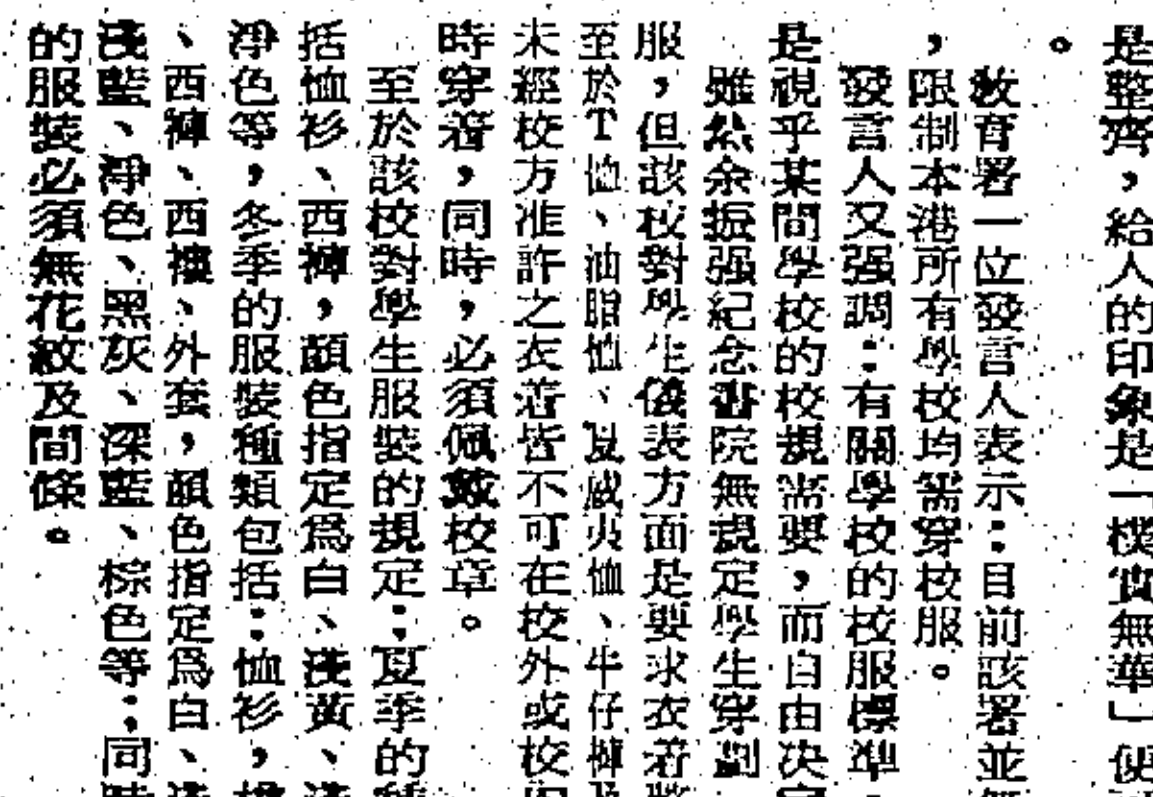 是整齊，給人的印象是「樸實無華」便
。
教育署一位發言人表示：目前該署並無
，限制本港所有學校均需穿校服。
發言人又强調：有關學校的校服標準，
是視乎某間學校的校規需要，而自由决定
雖然余振强紀念書院無規定學生穿劃
服，但該校對學生儀表方面是要求衣着整
至於T恤、油脂恤、夏威夷恤、牛仔褲及
未經校方准許之衣着皆不可在校外或校內
時穿着，同時，必須佩戴校章。
至於該校對學生服裝的規定：夏季的種
括恤衫、西褲，顏色指定爲白、淺黃、淺
淨色等，冬季的服裝種類包括：恤衫，
、西褲、西褸、外套，顏色指定爲白、淺
淺藍、淨色、黑灰、深藍、棕色等；同時
的服裝必須無花紋及間條。